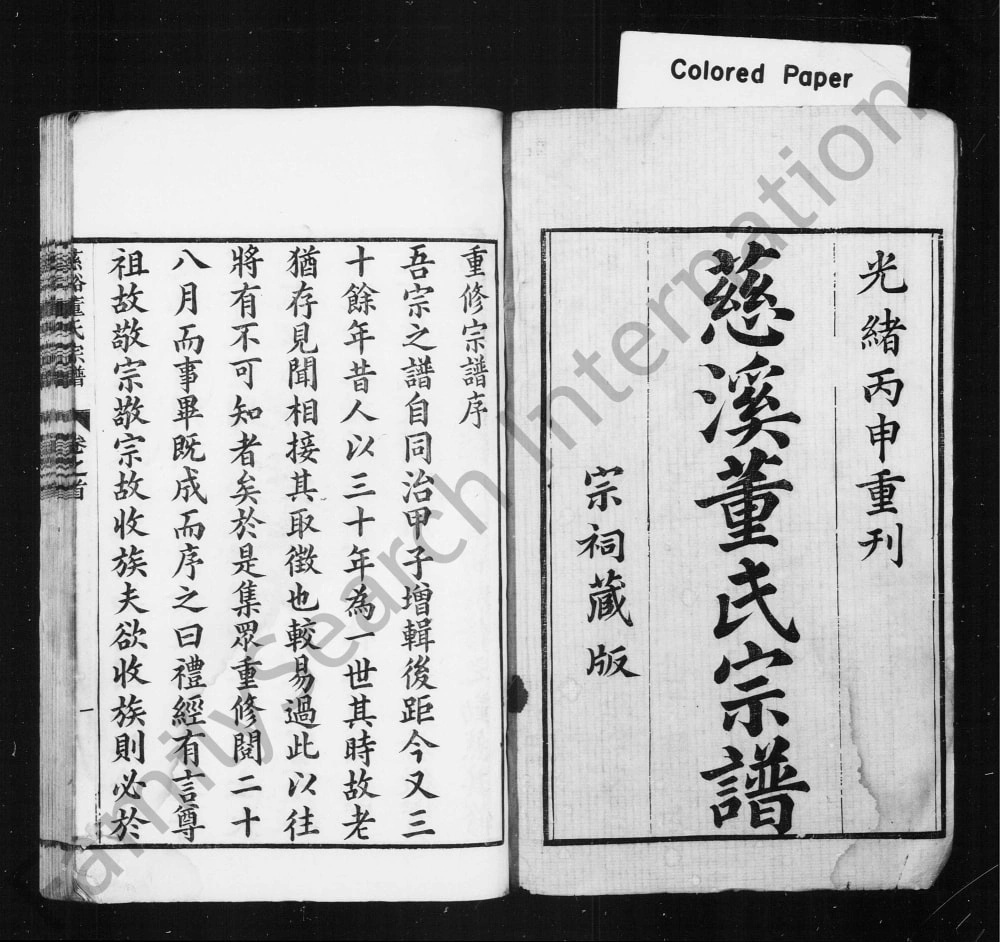 Colored Paper
光緒丙申重刊
慈溪董氏宗譜
宗祠藏版
重修宗譜序
吾宗之譜自同治甲子增輯後距今又三
十餘年昔人以三十年為一世其時故老
猶存見聞相接其取徵也較易過此以往
將有不可知者矣於是集眾重修閱二十
八月而事畢既成而序之曰禮經有言尊
祖故敬宗敬宗故收族夫欲收族則必於
慈谿董氏宗譜
卷之首
一
FamilySearch International